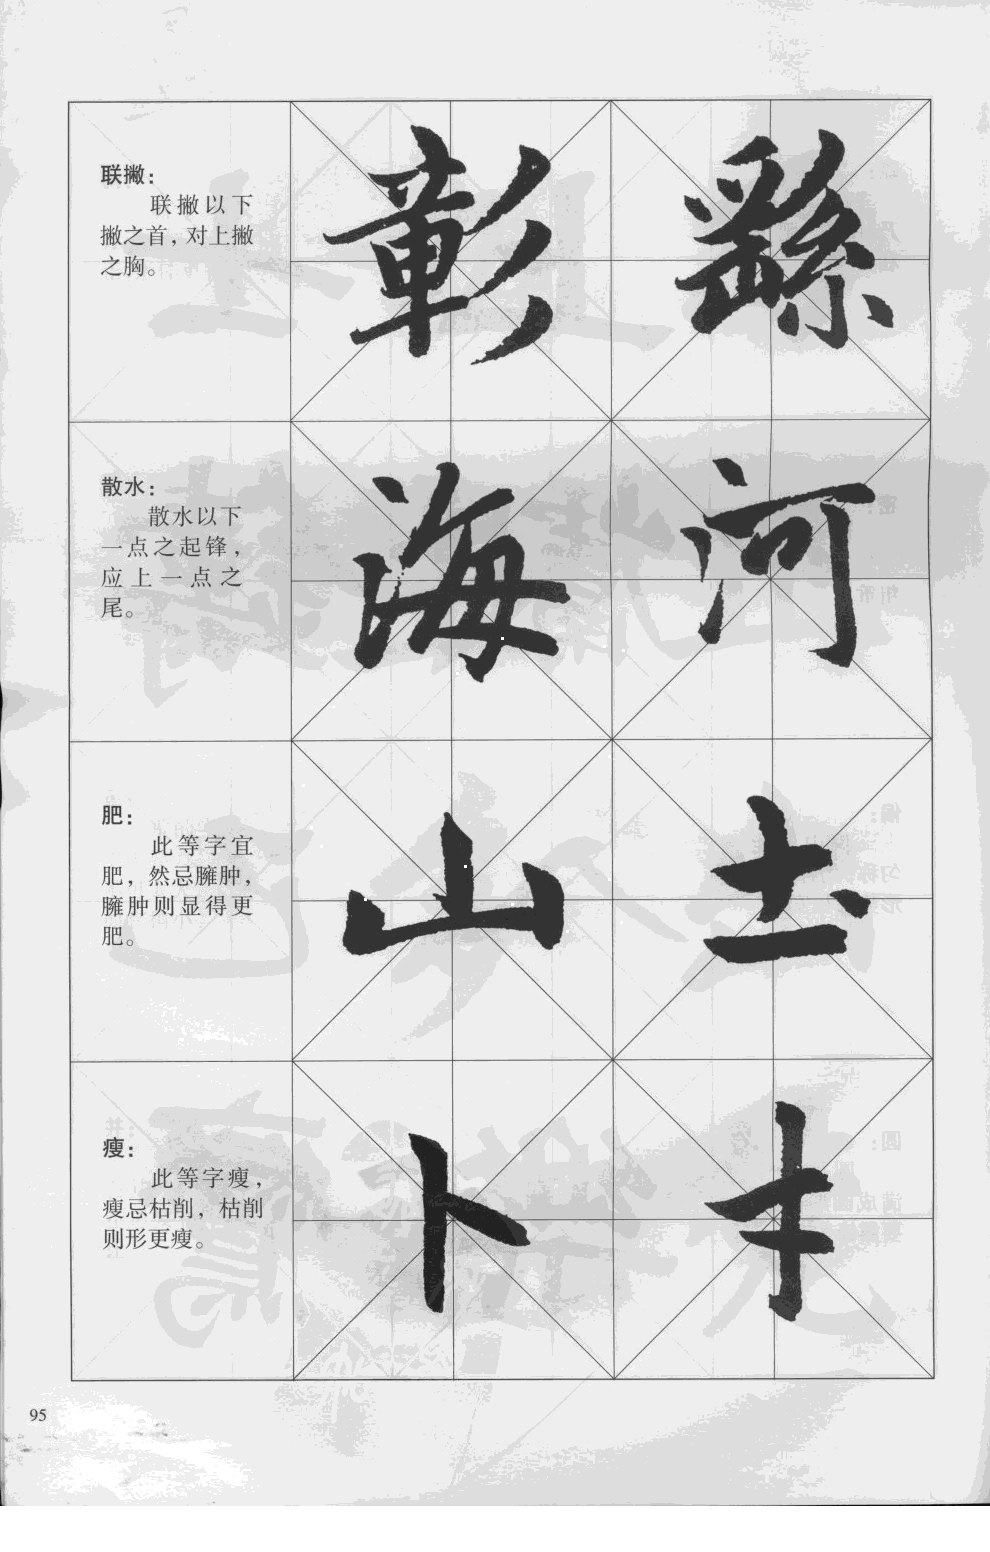 联撇：
联撇以下
撇之首，对上撇
之胸。
彰 繇
散水：
散水以下
一点之起锋，
应上一点之
尾。
海 河
肥：
此等字宜
肥，然忌臃肿，
臃肿则显得更
肥。
山 土
瘦：
此等字瘦，
瘦忌枯削，枯削
则形更瘦。
卜
95